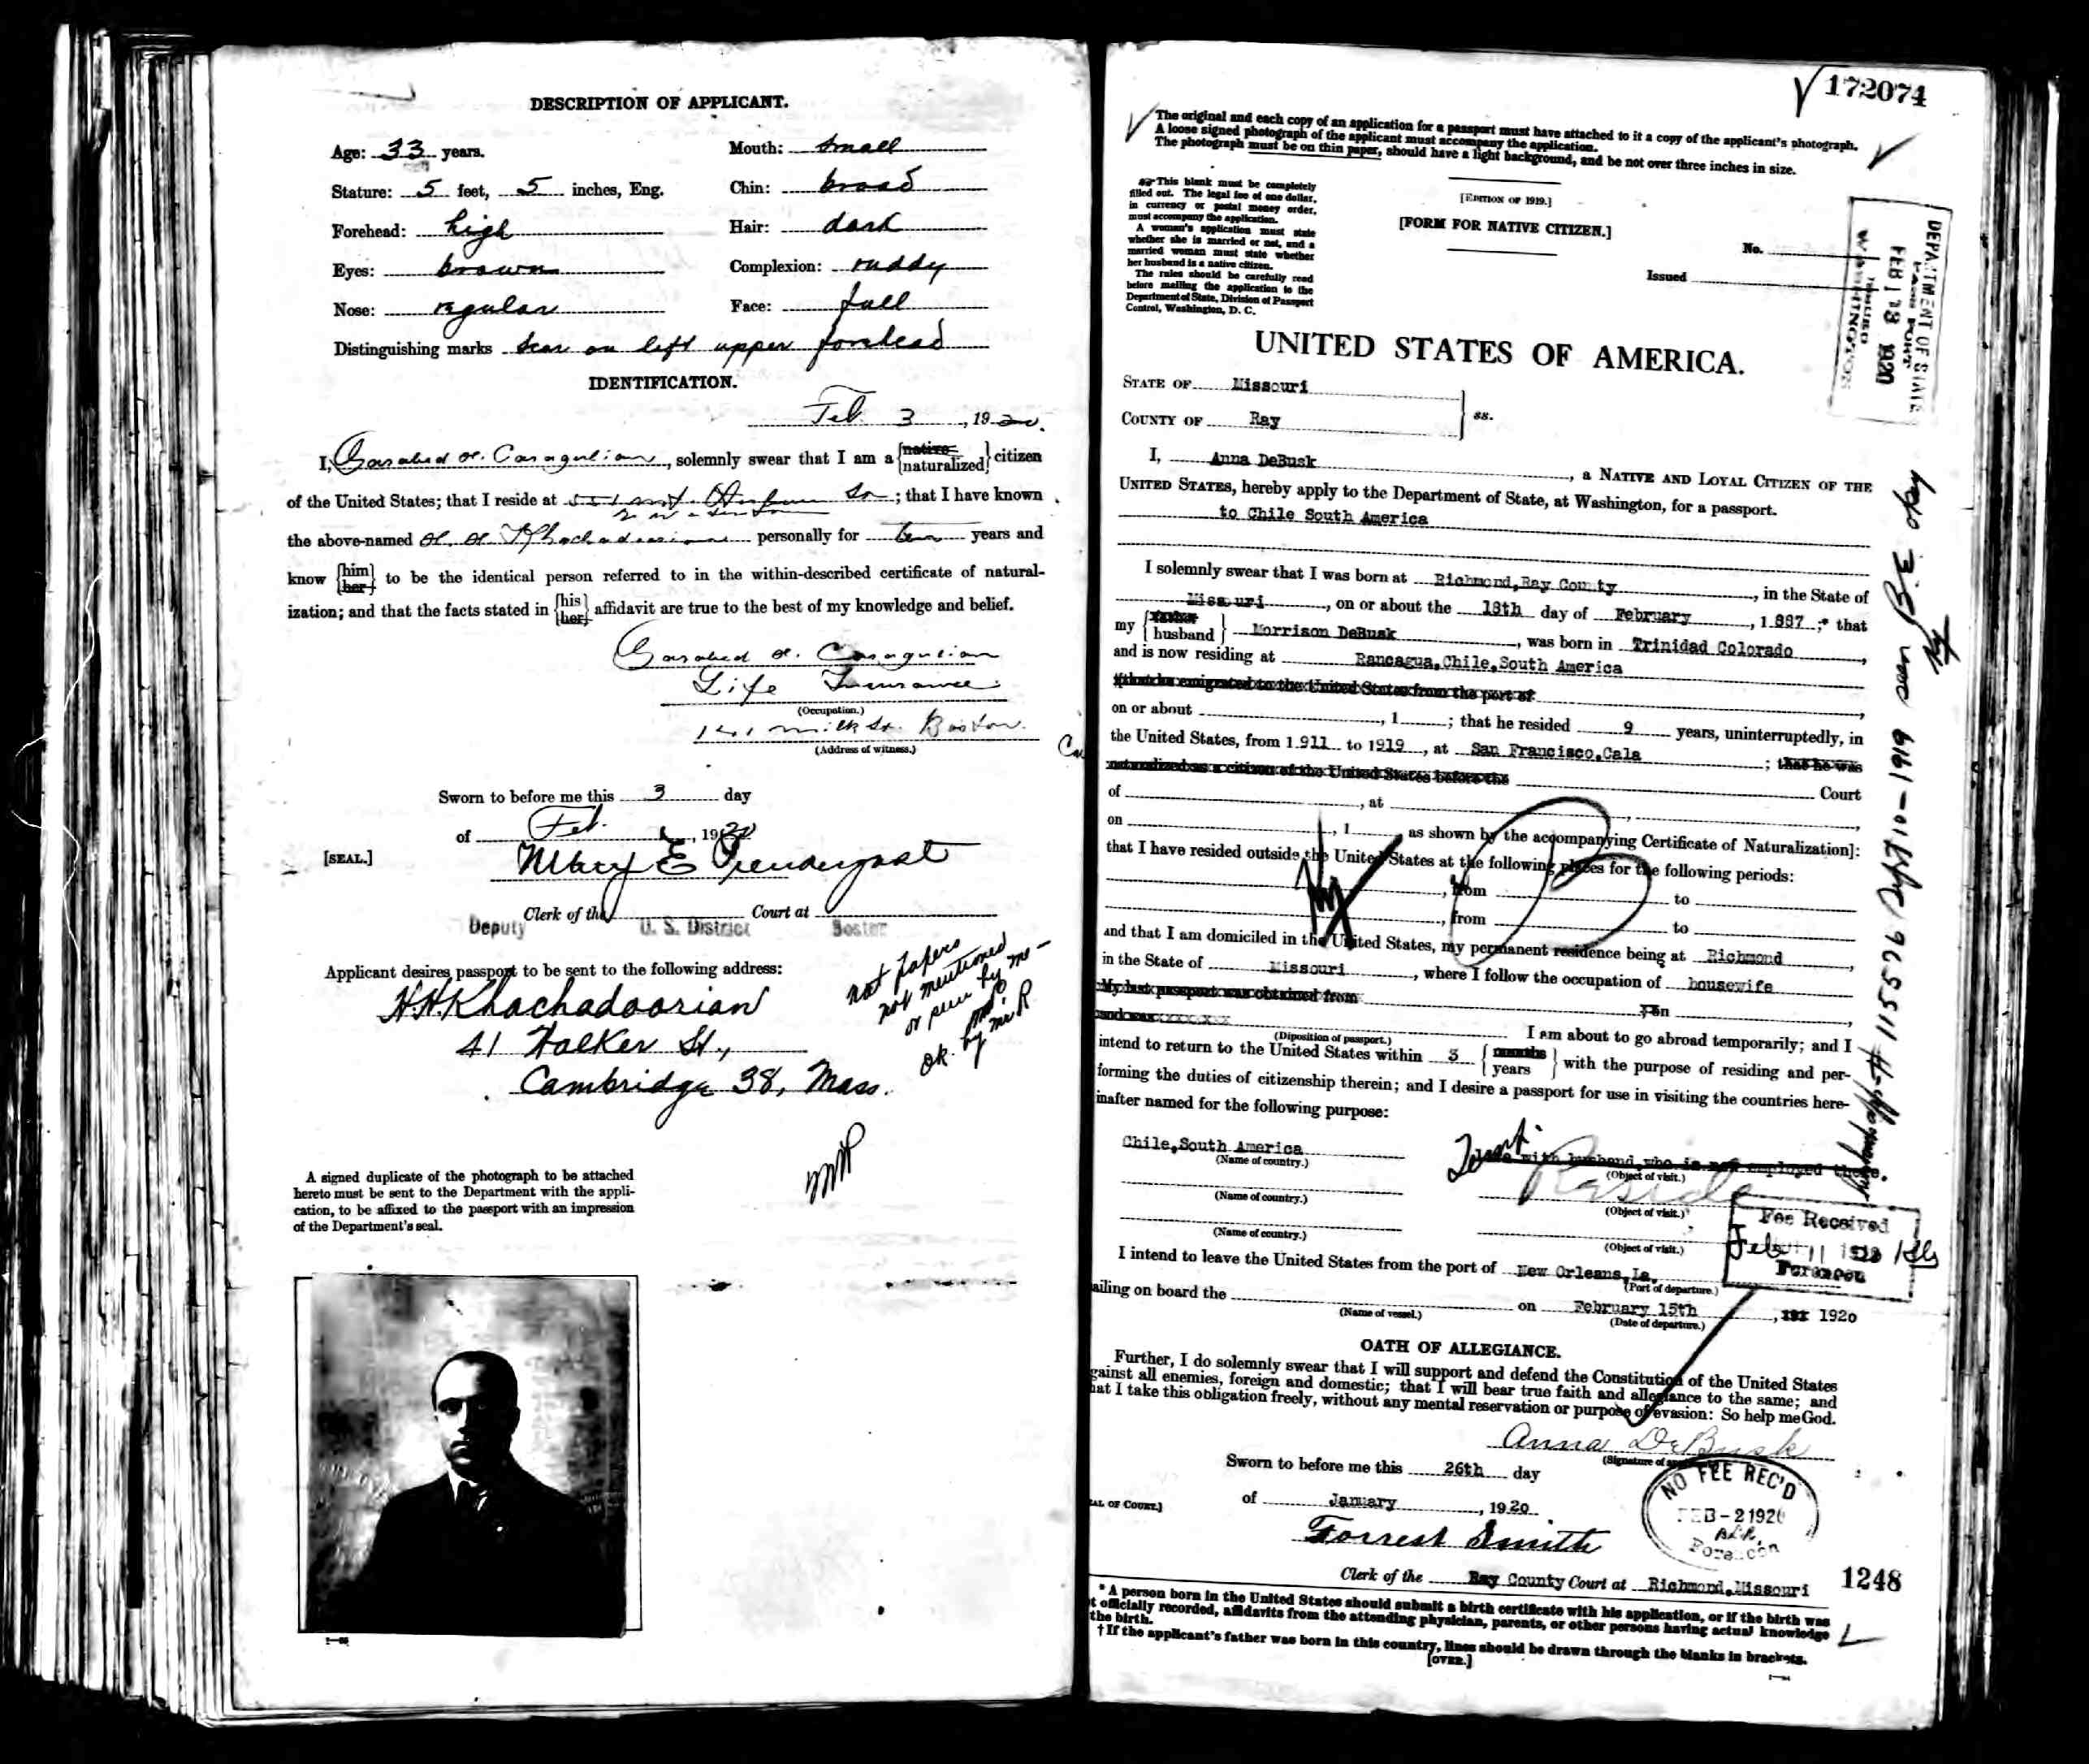 DESCRIPTION OF APPLICANT.
Age: 33 years.
Mouth: Small
Stature: 5 feet, 5 inches, Eng.
Chin: broad
Forehead: high
Hair: dark
Eyes: brown
Complexion: ruddy
Nose: regular
Face: full
Distinguishing marks Scar on left upper forehead
IDENTIFICATION.
Feb. 3, 1920.
I, Garabed H. Caragulian, solemnly swear that I am a {native naturalized} citizen
of the United States; that I reside at ; that I have known
the above-named H. H. Khachadoorian personally for ten years and
know {him her} to be the identical person referred to in the within-described certificate of natural-
ization; and that the facts stated in {his her} affidavit are true to the best of my knowledge and belief.
Garabed H. Caragulian
Life Insurance
(Occupation.)
141 Milk St. Boston.
(Address of witness.)
Sworn to before me this 3 day
of Feb., 1920
[SEAL.]
Mary E Prendergast
Deputy Clerk of the U. S. District Court at Boston
Applicant desires passport to be sent to the following address:
H.H. Khachadoorian
41 Walker St.,
Cambridge 38, Mass.
nat papers
not mentioned
or seen by me -
ok. by Mr R
A signed duplicate of the photograph to be attached
hereto must be sent to the Department with the appli-
cation, to be affixed to the passport with an impression
of the Department's seal.
172074
The original and each copy of an application for a passport must have attached to it a copy of the applicant's photograph.
A loose signed photograph of the applicant must accompany the application.
The photograph must be on thin paper, should have a light background, and be not over three inches in size.
This blank must be completely
filled out. The legal fee of one dollar,
in currency or postal money order,
must accompany the application.
A woman's application must state
whether she is married or not, and a
married woman must state whether
her husband is a native citizen.
The rules should be carefully read
before mailing the application to the
Department of State, Division of Passport
Control, Washington, D. C.
[EDITION OF 1919.]
[FORM FOR NATIVE CITIZEN.]
No.
Issued
DEPARTMENT OF STATE
FEB 18 1920
WASHINGTON
UNITED STATES OF AMERICA.
STATE OF Missouri
COUNTY OF Ray
ss.
I, Anna DeBusk, a NATIVE AND LOYAL CITIZEN OF THE
UNITED STATES, hereby apply to the Department of State, at Washington, for a passport.
to Chile South America
I solemnly swear that I was born at Richmond, Ray County, in the State of
Missouri, on or about the 18th day of February, 1887;* that
my {father husband} Morrison DeBusk, was born in Trinidad Colorado,
and is now residing at Rancagua, Chile, South America
[that he emigrated to the United States from the port of
on or about , 1 ; that he resided 9 years, uninterruptedly, in
the United States, from 1911 to 1919, at San Francisco, Cala ; that he was
naturalized as a citizen of the United States before the Court
of , at ,
on , 1 , as shown by the accompanying Certificate of Naturalization];
that I have resided outside the United States at the following places for the following periods:
, from to
, from to
and that I am domiciled in the United States, my permanent residence being at Richmond,
in the State of Missouri, where I follow the occupation of housewife
My last passport was obtained from on
and was
(Diposition of passport.)
I am about to go abroad temporarily; and I
intend to return to the United States within 3 {months years} with the purpose of residing and per-
forming the duties of citizenship therein; and I desire a passport for use in visiting the countries here-
inafter named for the following purpose:
Chile, South America
(Name of country.)
with husband, who is now employed there.
(Object of visit.)
Reside
(Name of country.)
(Object of visit.)
(Name of country.)
(Object of visit.)
Fee Received
Feb 11
I intend to leave the United States from the port of New Orleans, La.
(Port of departure.)
ailing on board the on February 15th, 1920
(Name of vessel.)
(Date of departure.)
OATH OF ALLEGIANCE.
Further, I do solemnly swear that I will support and defend the Constitution of the United States
gainst all enemies, foreign and domestic; that I will bear true faith and allegiance to the same; and
hat I take this obligation freely, without any mental reservation or purpose of evasion: So help me God.
Anna DeBusk
(Signature of
Sworn to before me this 26th day
of January, 1920
AL OF COURT.]
NO FEE REC'D
FEB -2 1920
Forrest Smith
Clerk of the Ray County Court at Richmond, Missouri
1248
* A person born in the United States should submit a birth certificate with his application, or if the birth was
t officially recorded, affidavits from the attending physician, parents, or other persons having actual knowledge
the birth.
† If the applicant's father was born in this country, lines should be drawn through the blanks in brackets.
[OVER.]